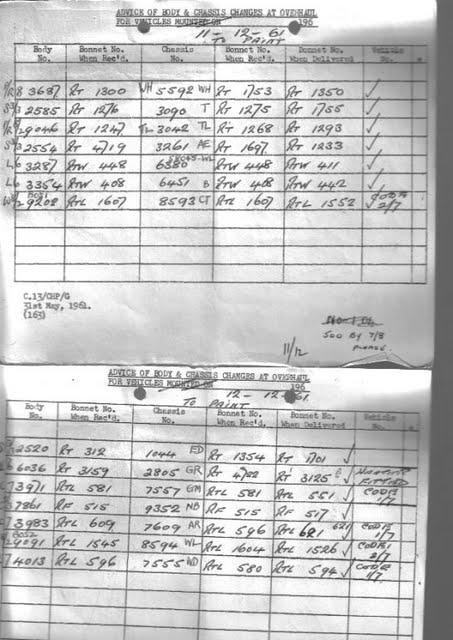 ADVICE OF BODY & CHASSIS CHANGES AT OVERHAUL
FOR VEHICLES MOUNTED ON 11 - 12 - 61 196
TO PAINT
Body No. Bonnet No. When Rec'd. Chassis No. Bonnet No. When Rec'd. Bonnet No. When Delivered Vehicle No.
8 3687 RT 1300 WH 5592 WH RT 1753 RT 1350 ✓
2585 RT 1276 3090 T RT 1275 RT 1755 ✓
9046 RT 1247 TL 3042 TL RT 1268 RT 1293 ✓
2554 RT 4719 3261 AE RT 1697 RT 1233 ✓
L6 3287 RTW 448 6380 WL RTW 448 RTW 411 ✓
L6 3354 RTW 408 6451 B RTW 408 RTW 442 ✓
9208 RTL 1607 8593 CT RTL 1607 RTL 1552 ✓ 2/7
C.13/CHP/G
31st May, 1961.
(163)
500 BY 7/8
PLEASE
11/12
ADVICE OF BODY & CHASSIS CHANGES AT OVERHAUL
FOR VEHICLES MOUNTED ON 12 - 12 - 61. 196
TO PAINT
Body No. Bonnet No. When Rec'd. Chassis No. Bonnet No. When Rec'd. Bonnet No. When Delivered Vehicle No.
2520 RT 312 1044 ED RT 1354 RT 1701 ✓
6036 RT 3159 2805 GR RT RT 3125 ✓ FITTED
3971 RTL 581 7557 GM RTL 581 RTL 551 ✓ 1/7
7861 RF 515 9352 NB RF 515 RF 517 ✓
3983 RTL 609 7609 AR RTL 596 RTL 621 621 ✓ 1/7
9091 RTL 1545 8594 WL RTL 1604 RTL 1526 ✓ 2/7
4013 RTL 596 7555 WD RTL 580 RTL 594 ✓ 1/7